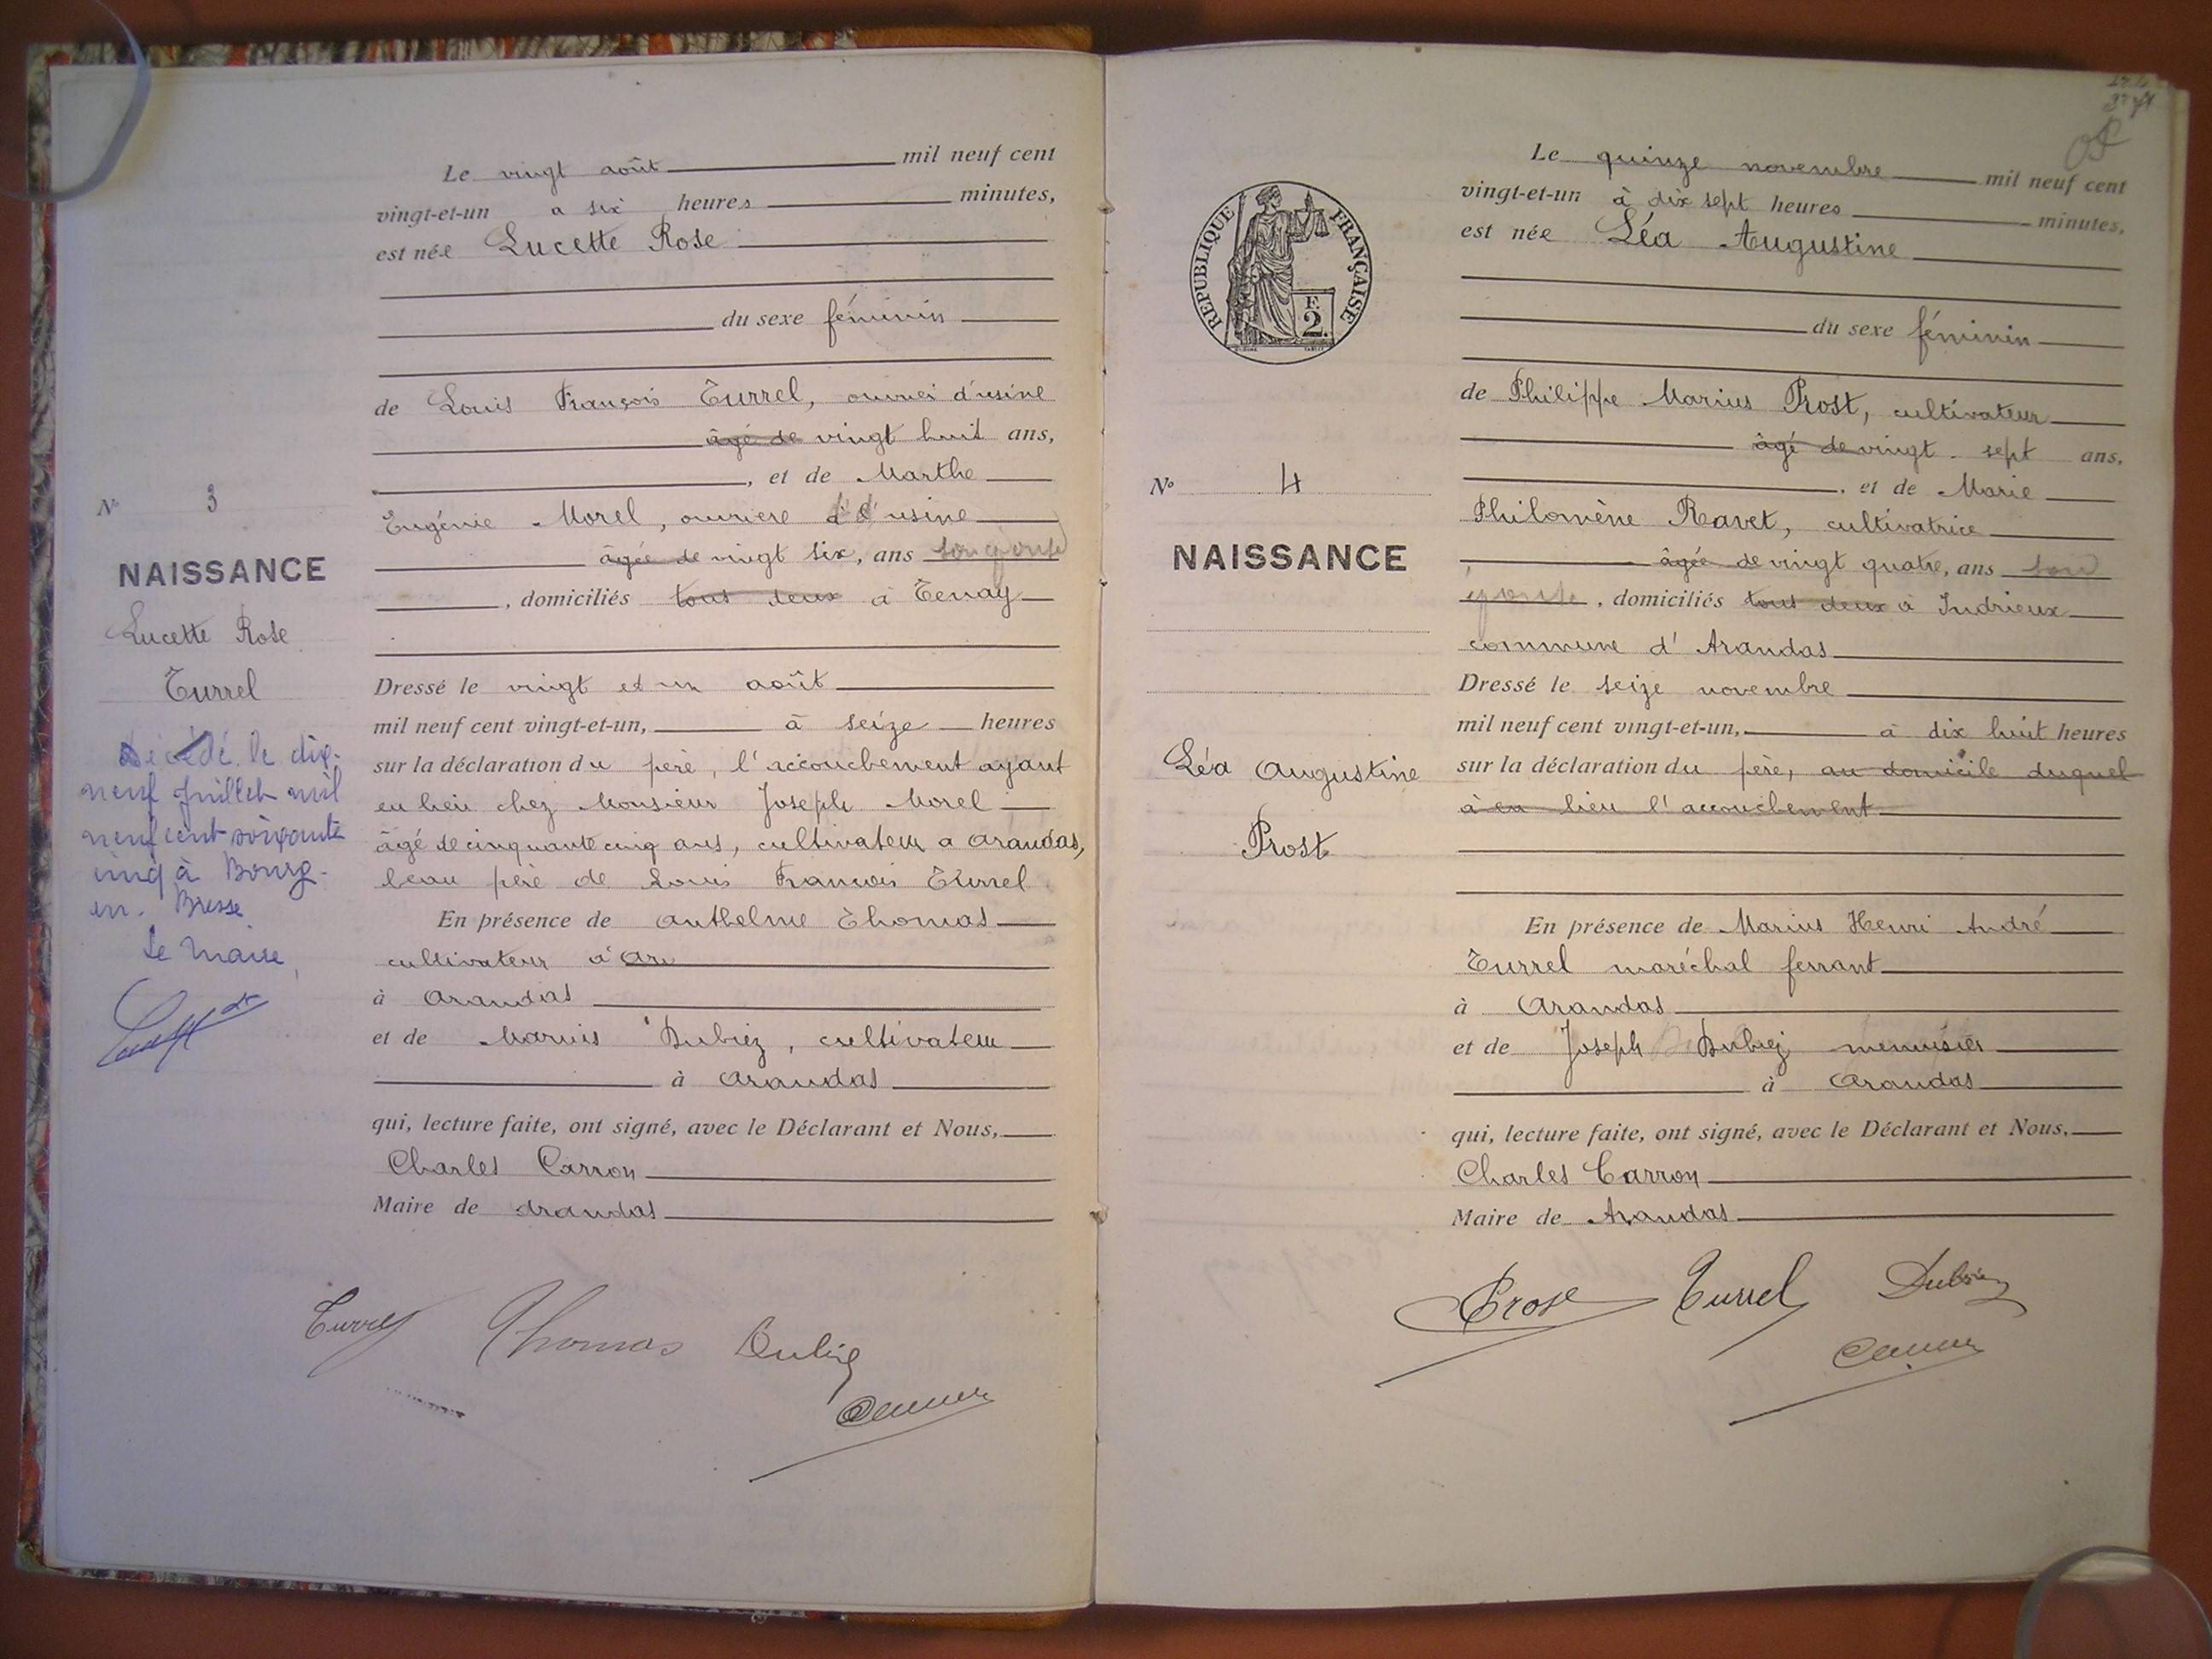 Le vingt août mil neuf cent
vingt-et-un a six heures minutes,
est née Lucette Rose
du sexe féminin
de Louis François Turrel, ouvrier d'usine
âgé de vingt huit ans,
, et de Marthe
Eugénie Morel, ouvriere d'usine
âgée de vingt six, ans son épouse
, domiciliés tous deux à Tenay
Dressé le vingt et un août
mil neuf cent vingt-et-un, à seize heures
sur la déclaration du père, l'accouchement ayant
eu lieu chez Monsieur Joseph Morel
âgé de cinquante cinq ans, cultivateur a Arandas,
beau père de Louis François Turrel
En présence de Anthelme Thomas
cultivateur à Ara
à Arandas
et de Marius Dubiez, cultivateur
à Arandas
qui, lecture faite, ont signé, avec le Déclarant et Nous,
Charles Carron
Maire de Arandas
Turrel Thomas Dubiez
Carron
N° 3
NAISSANCE
Lucette Rose
Turrel
Décédé le dix-
neuf juillet mil
neuf cent soixante
cinq à Bourg-
en-Bresse
Le Maire,
REPUBLIQUE FRANÇAISE
F.
2.
N° 4
NAISSANCE
Léa Augustine
Prost
Le quinze novembre mil neuf cent
vingt-et-un à dix sept heures minutes,
est née Léa Augustine
du sexe féminin
de Philippe Marius Prost, cultivateur
âgé de vingt-sept ans,
, et de Marie
Philomène Ravet, cultivatrice
âgée de vingt quatre, ans son
épouse, domiciliés tous deux à Indrieux
commune d'Arandas
Dressé le seize novembre
mil neuf cent vingt-et-un, à dix huit heures
sur la déclaration du père, au domicile duquel
à eu lieu l'accouchement
En présence de Marius Henri André
Turrel maréchal ferrant
à Arandas
et de Joseph Dubiez menuisier
à Arandas
qui, lecture faite, ont signé, avec le Déclarant et Nous,
Charles Carron
Maire de Arandas
Prost Turrel Dubiez
Carron